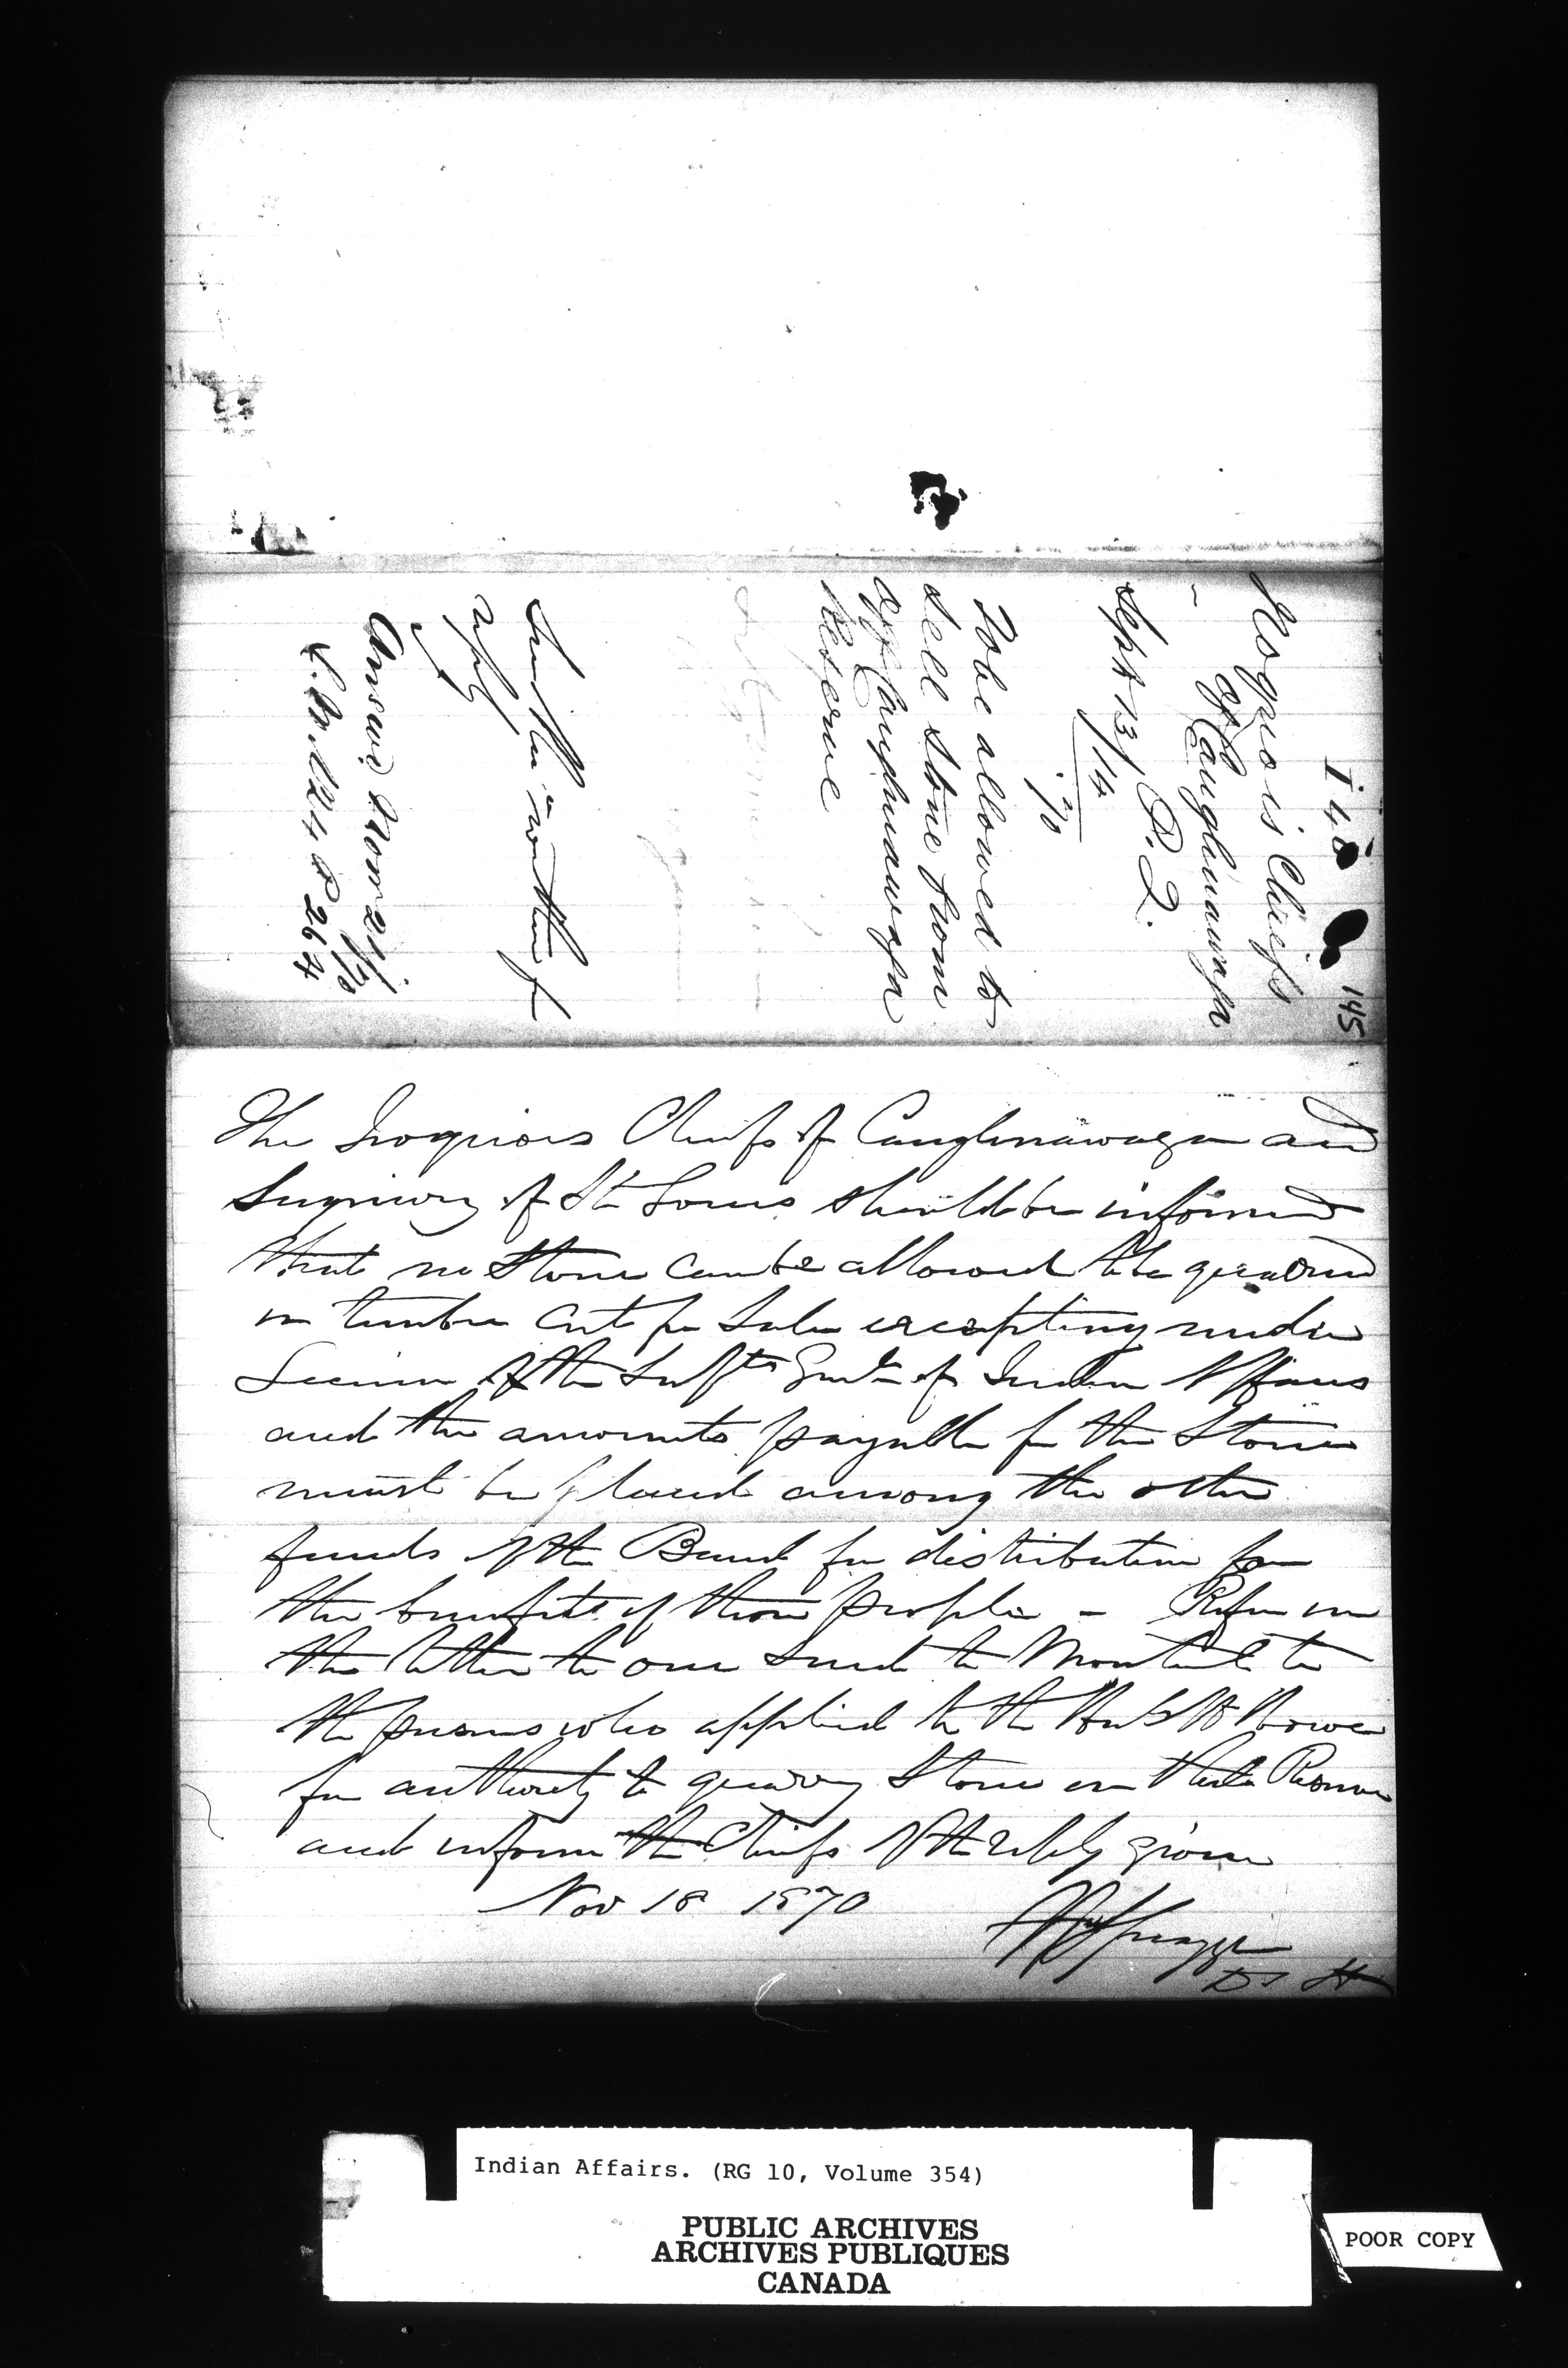 I 48 145
Iroquois Chiefs
of Caughnawaga
P. Q.
Sept 13/14
70
To be allowed to
sell stone from
off Caughnawaga
Reserve
reply
Answd Novr 21/70
L. B. No 24 P 264
The Iroquois Chiefs of Caughnawaga and
Seigniory of St Louis should be informed
that no stone can be allowed to be quarried
or timber cut for sale excepting under
License of the Supt Genl of Indian Affairs
and the amounts payable for the stone
must be placed among the other
funds of the Band for distribution for
the benefit of those people - Refer in
the letter to one sent to Montreal to
the persons who applied to the Honble Howe
for authority to quarry stone on that Reserve
and inform the Chiefs of the reply given
Nov 18 1870
Spragge
Indian Affairs. (RG 10, Volume 354)
PUBLIC ARCHIVES
ARCHIVES PUBLIQUES
CANADA
POOR COPY